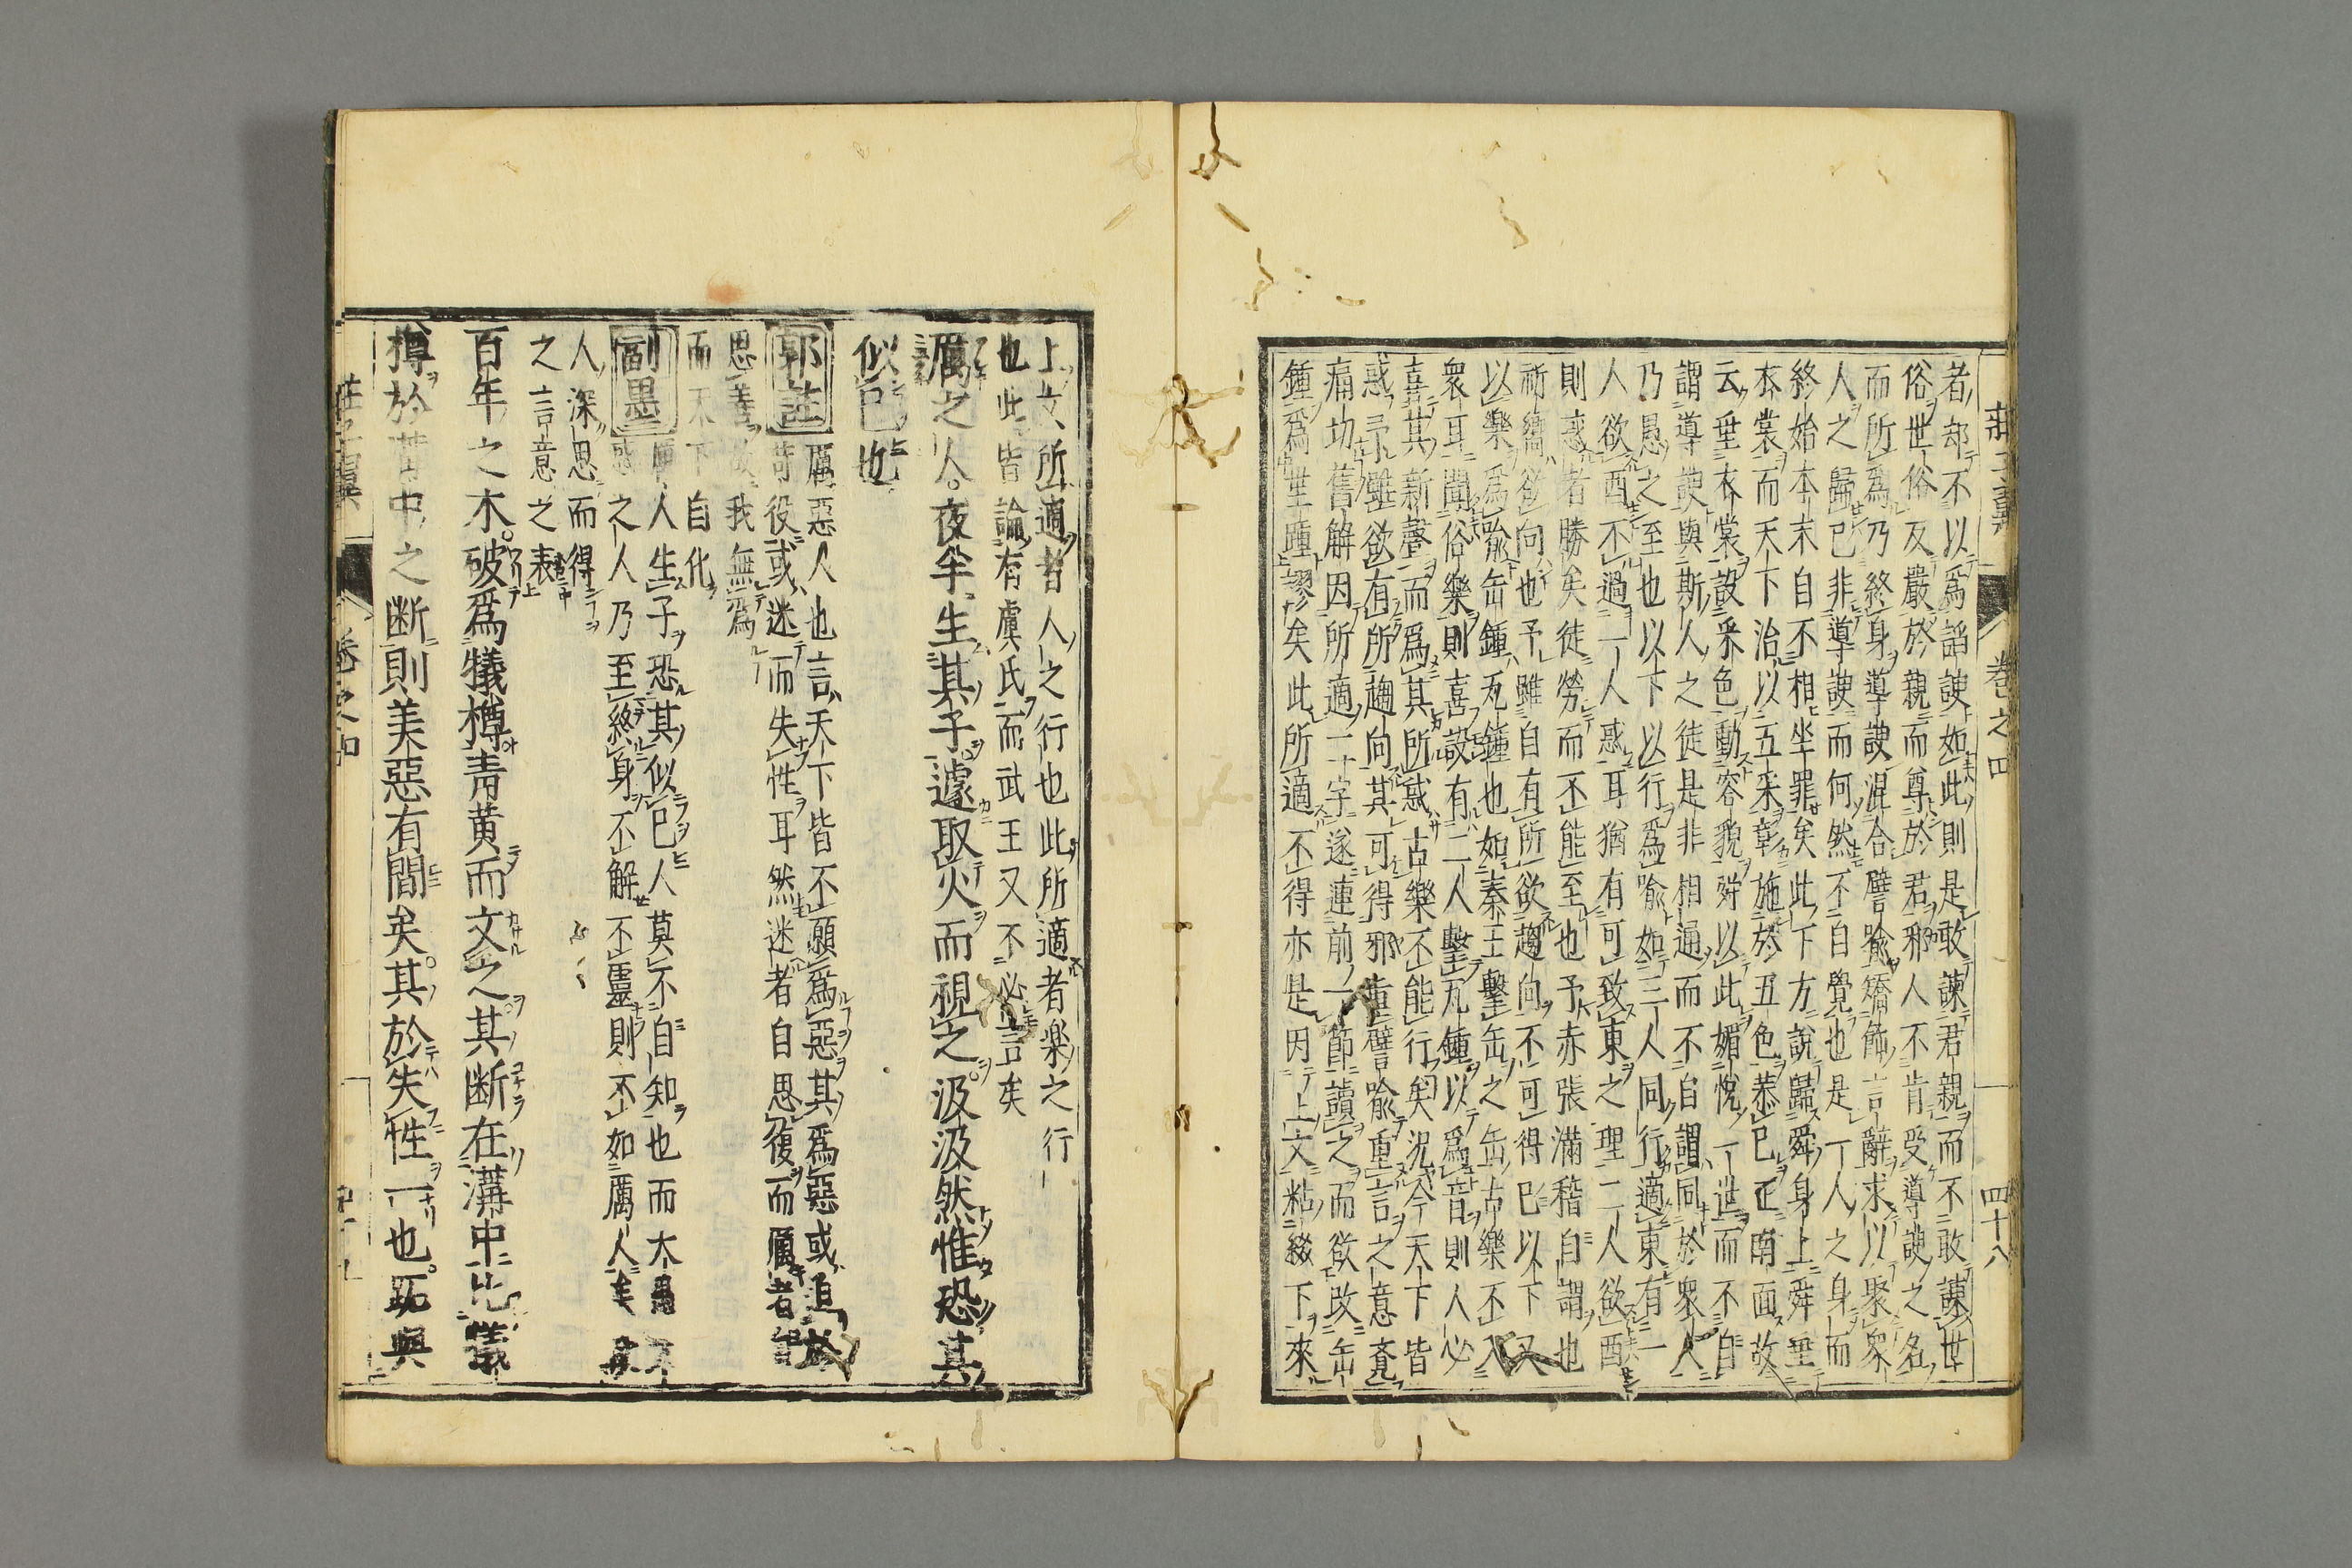 莊子翼 卷之四 四十八
者却不以爲諂諛如此則是敢諫君親而不敢諫世
俗世俗反嚴於親而尊於君邪人不肯受導諛之名
而所爲乃終身導諛混合譬喻矯飾言辭求以聚衆
人之歸已非導諛而何然不自覺也是一人之身而
終始本末自不相坐罪矣此下方說歸舜身上舜垂
衣裳而天下治以五采彰施於五色恭已正南面故
云垂衣裳設釆色動容貌舜以此媚悅一世而不自
謂導諛與斯人之徒是非相通而不自謂同於衆人
乃愚之至也以下以行爲喻如三人同行適東有一
人欲酉不過一人惑耳猶有可致東之理二人欲酉
則惑者勝矣徒勞而不能至也予赤張滿稽自謂也
祈嚮欲向也予雖自有所欲趨向不可得已以下又
以樂爲喻缶鍾瓦鍾也如秦王擊缶之缶古樂不入
衆耳聞俗樂則喜設有二人擊瓦鍾以爲音則人必
喜其新聲而爲其所惑古樂不能行矣況今天下皆
惑予雖欲有所趨向其可得邪重譬喻重言之意竟
痛切舊解因所適二字遂連前一節讀之而欲改缶
鍾爲垂踵謬矣此所適不得亦是因上文粘綴下來
上文所適者人之行也此所適者樂之行
也此皆論有虞氏而武王又不必言矣
厲之人。夜半生其子。遽取火而視之。汲汲然惟恐其
似已也
郭註 厲惡人也言天下皆不願爲惡其爲惡或迫於
苛役或迷而失性耳然迷者自思復而厲者自
思善故我無爲
而天下自化
副墨 厲人生子恐其似已人莫不自知也而大愚不
之人乃至終身不解不靈則不如厲人矣
人深思而得
之言意之表
百年之木。破爲犧樽青黃而文之。其斷在溝中比犧
樽於溝中之斷則美惡有間矣。其於失性一也。跖與
莊子翼 卷之四